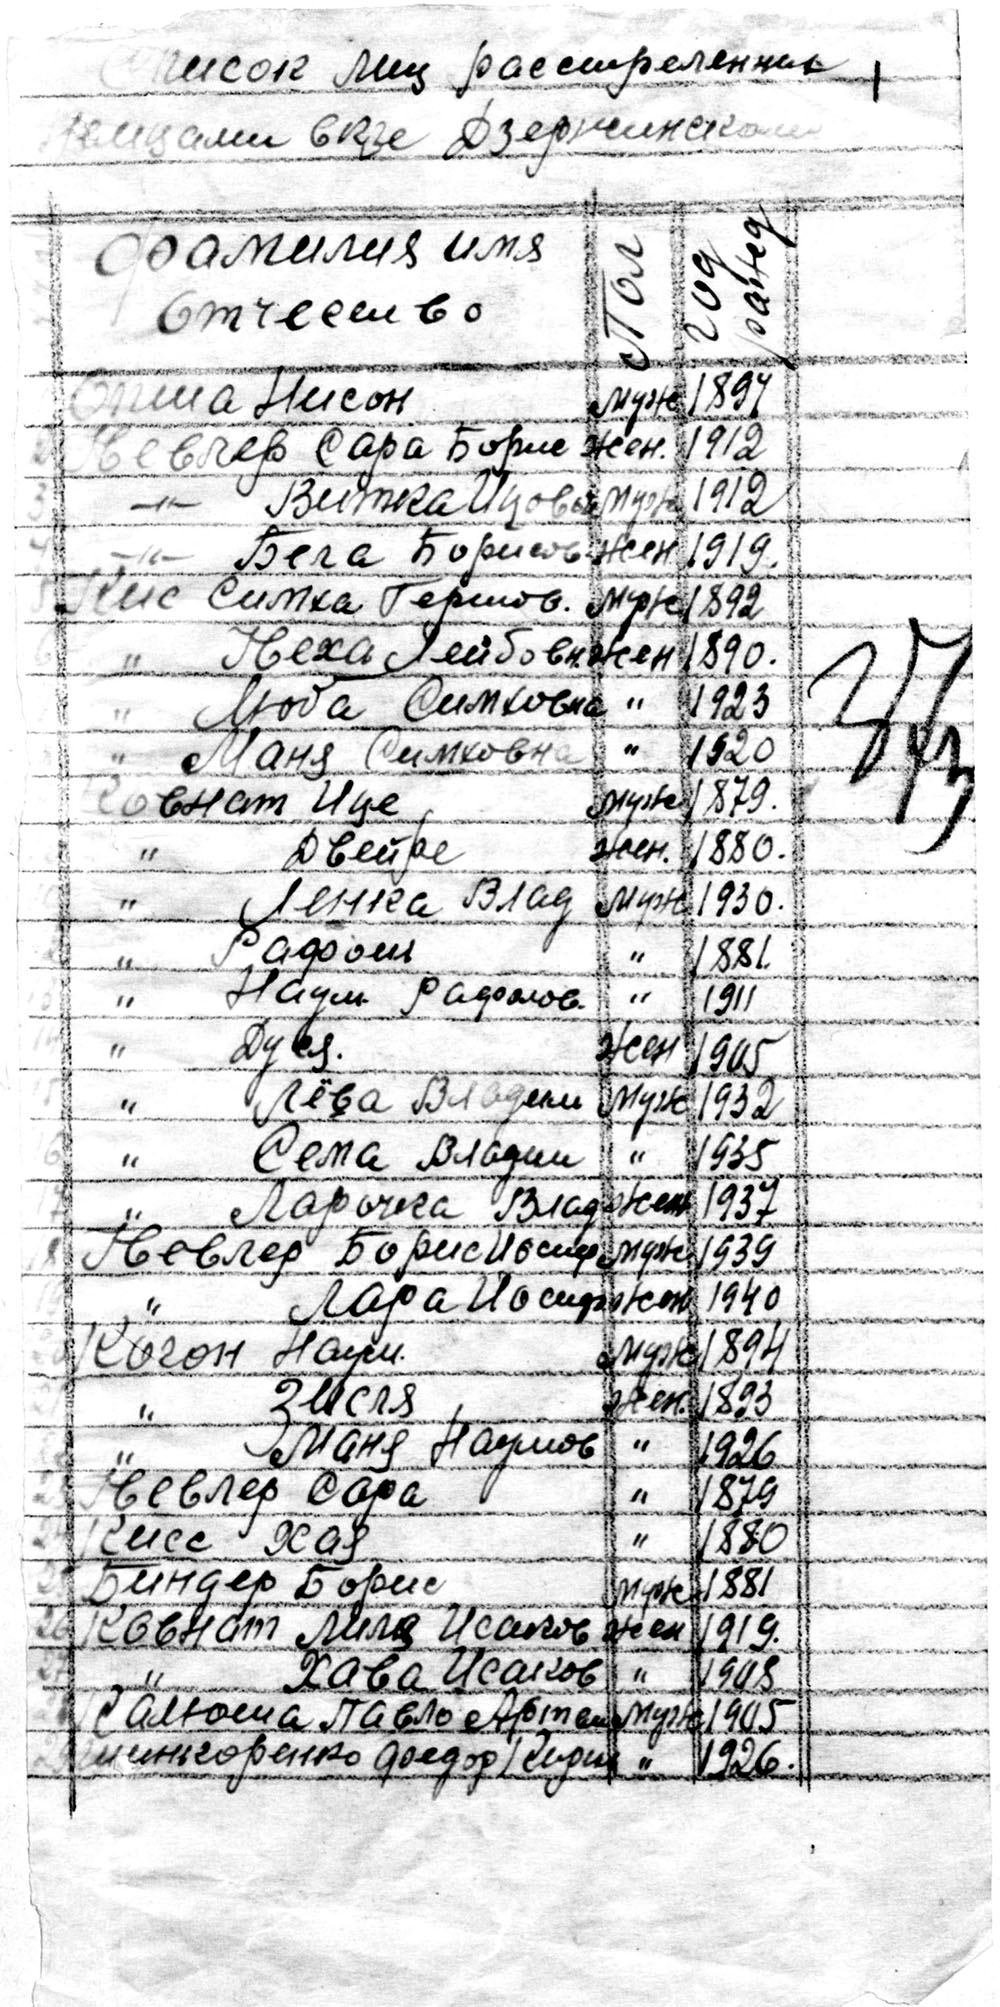 Список лиц расстрелянных
Немцами в к/зе Дзержинском
Фамилия имя
Отчество
Пол
год
ражд
Нисон муж 1897
2 Невлер Сара Борис жен. 1912
3 -"- Витка муж 1912
4 -"- Бега Борисов. жен 1919.
5 Кис Симха Гершов. муж 1892
6 " Неха Лейбовн. жен 1890.
" Люба Симховна " 1923
" Маня Симховна " 1920
Ковнат Ице муж 1879.
" Двейре жен. 1880.
" Ленка Влад муж 1930.
" " 1881.
" Наум " 1911
" Дуся. жен 1905
" Лёва Владим муж 1932
6 " Сема Владим " 1935
17 " Ларочка Влад жен 1937
18 Невлер Борис Иосиф муж 1939
" Лара Иосиф жен 1940
Когон Наум. муж 1894
21 " Зисля жен. 1893
" Маня Наумов " 1926
23 Невлер Сара " 1879
Кисс Хая " 1880
Биндер Борис муж 1881
26 Ковнат Исаков жен 1919.
27 " Хава Исаков " 1908
Павло Артем муж 1905
Федор " 1926.